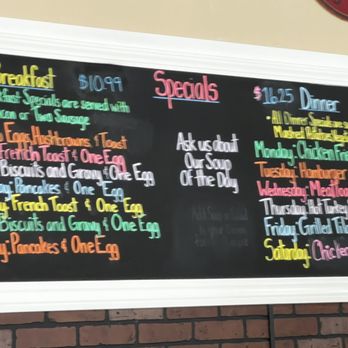 Breakfast $10.99
Specials are served with
Bacon or Two Sausage
Eggs, Hashbrowns & Toast
French Toast & One Egg
Biscuits and Gravy & One Egg
Pancakes & One Egg
French Toast & One Egg
Biscuits and Gravy & One Egg
Pancakes & One Egg
Specials
Ask us about
Our Soup
Of the Day
Add Soup or Salad
$16.25 Dinner
- All Dinner Specials
Mashed
Monday: Chicken
Tuesday: Hamburger
Wednesday:
Thursday: Hot Turkey
Friday: Grilled
Saturday: